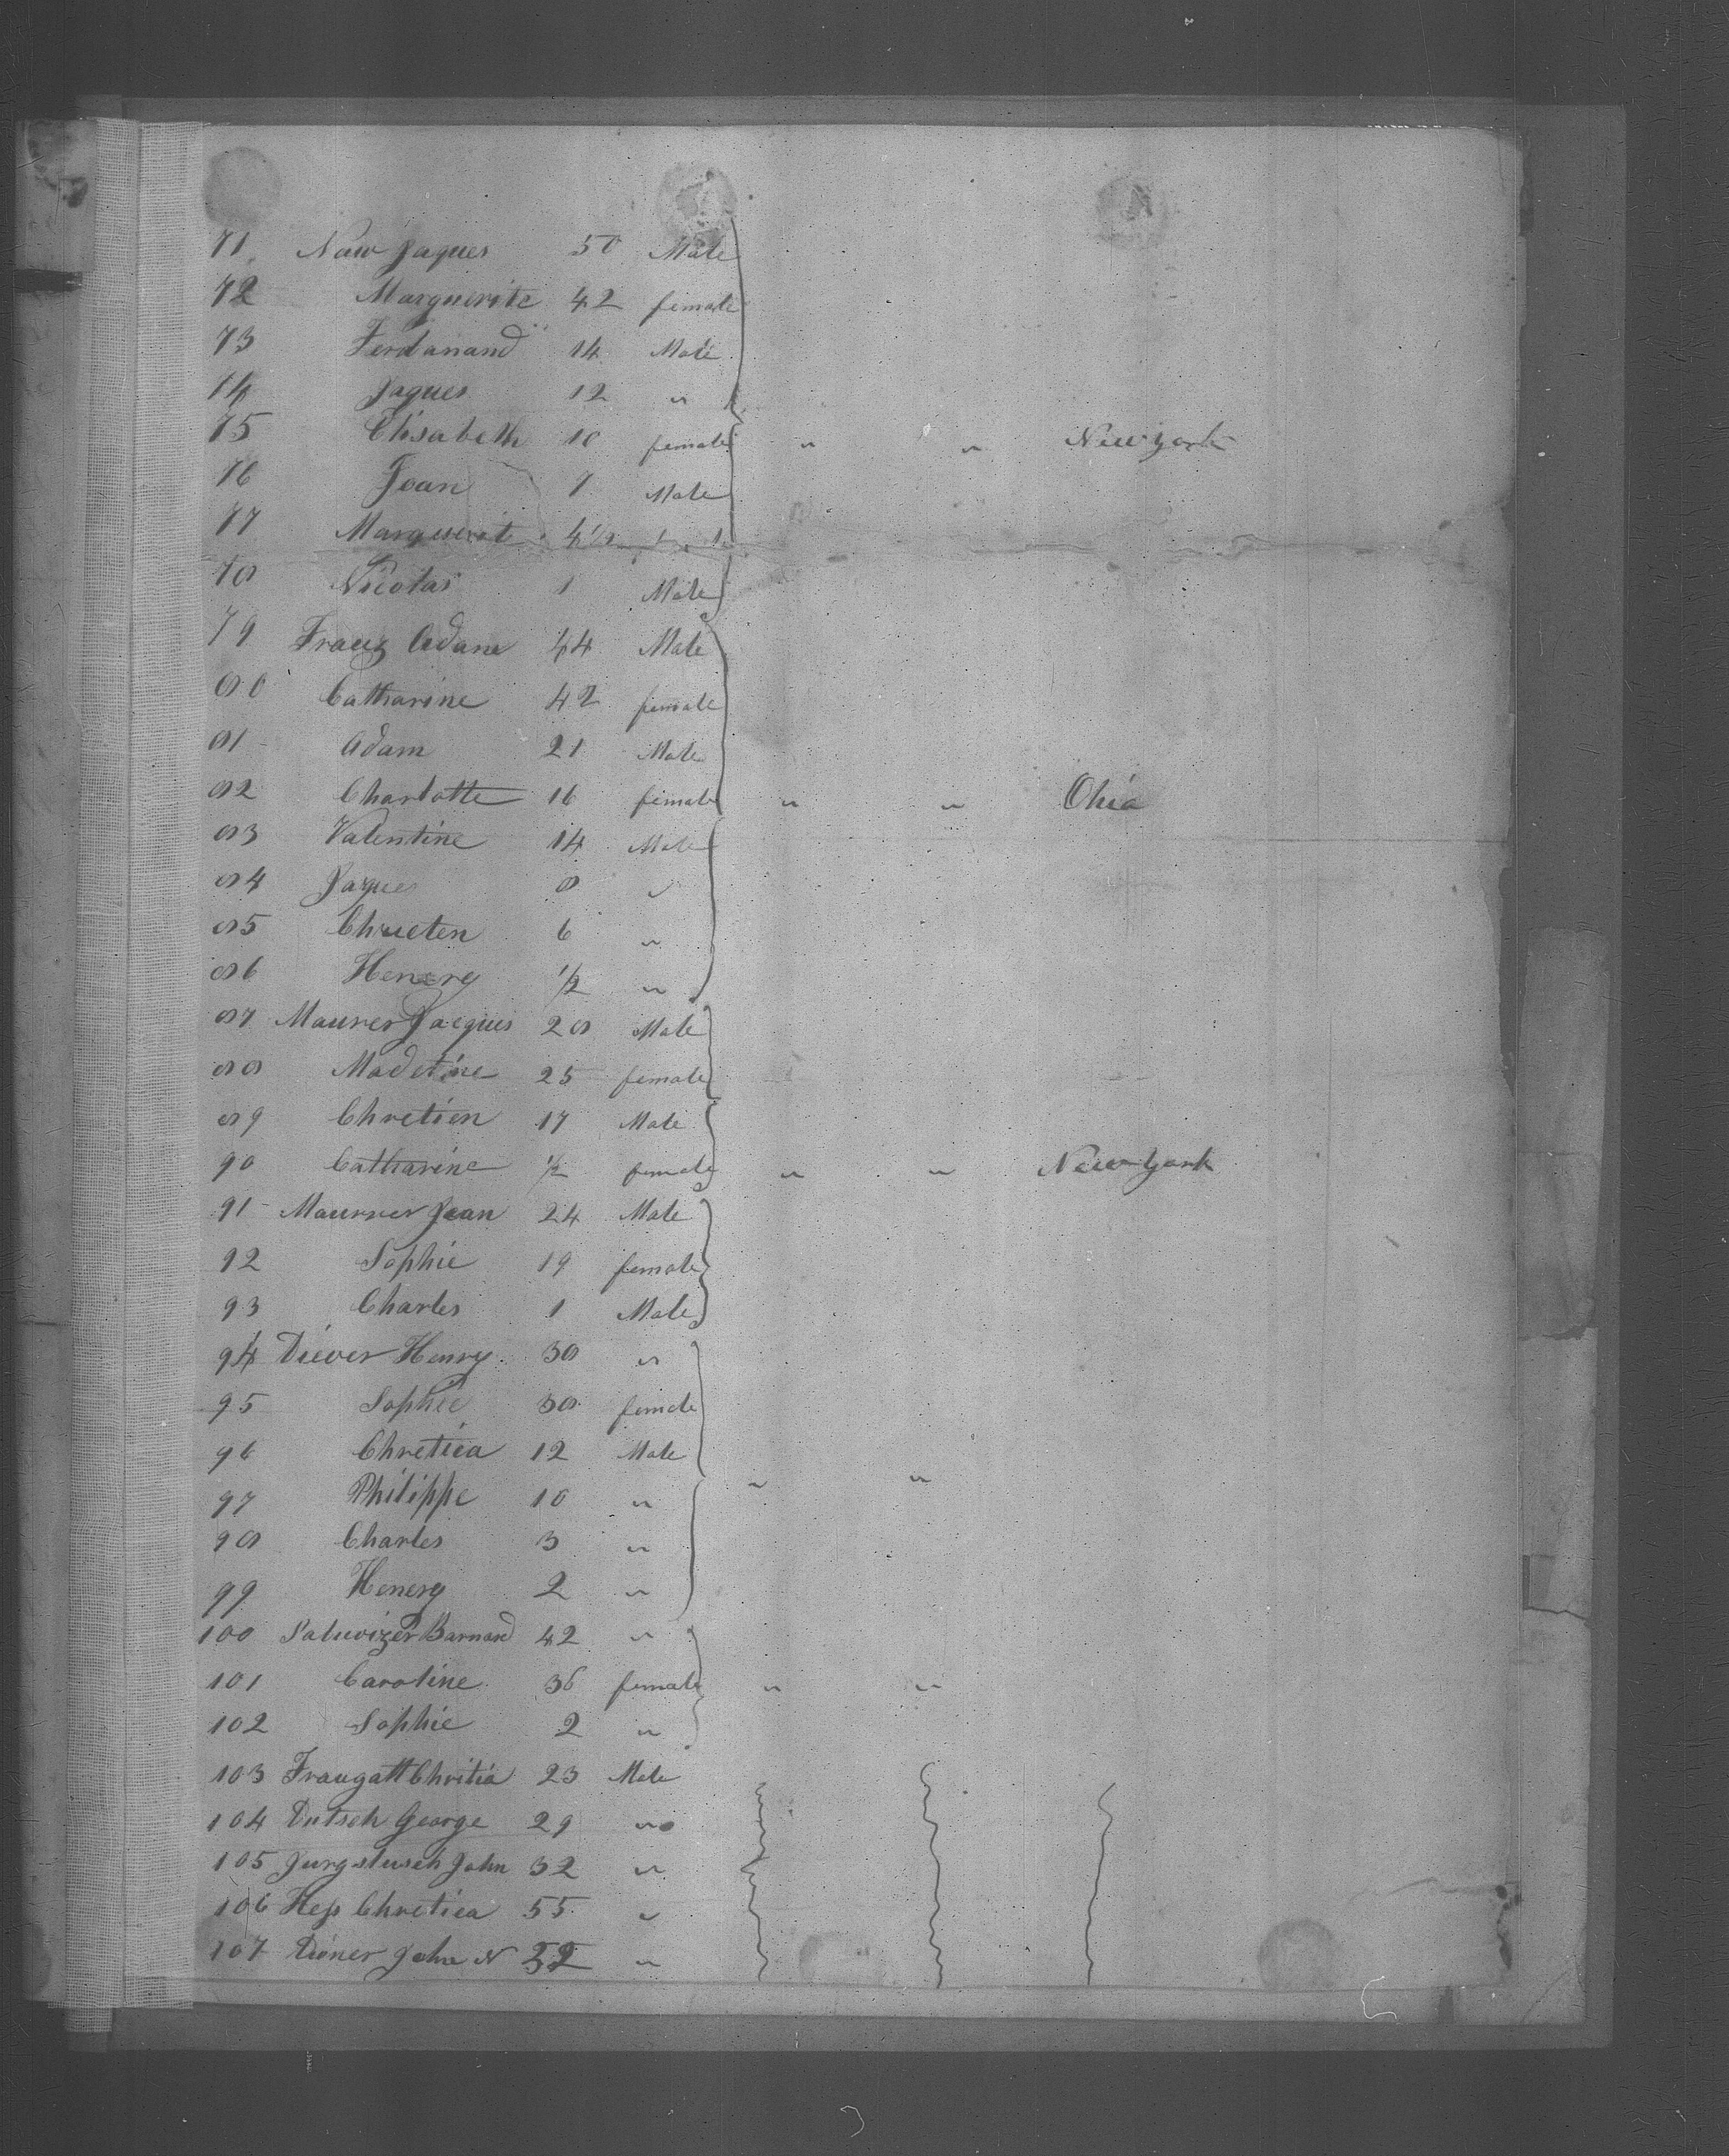 71 Naw Jaques 50 Male
72 Marguerite 42 female
73 Ferdanand 14 Male
74 Jaques 12 "
75 Elisabeth 10 female " " New york
76 Jean 7 Male
77 Marguerite 4 1/2
78 Nicolas 1 Male
79 Franz Adam 44 Male
80 Catharine 42 female
81 Adam 21 Male
82 Charlotte 16 female " " Ohio
83 Valentine 14 Male
84 Jaques 8 "
85 Chrieten 6 "
86 Henery 1/2 "
87 Maurer Jacques 28 Male
88 Madeline 25 female
89 Chretien 17 Male
90 Catharine 1/2 female " " New york
91 Maurrer Jean 24 Male
92 Sophie 19 female
93 Charles 1 Male
94 Diever Henry 38 "
95 Sophie 38 female
96 Chretiea 12 Male
97 Philippe 10 " " "
98 Charles 3 "
99 Henery 2 "
100 Barnard 42 "
101 Caroline 36 female " "
102 Sophie 2 "
103 Fraugatt Chritia 23 Male
104 Dutsch George 29 "
105 John 32 "
106 Hess Chretiea 55 "
107 Diener John N "